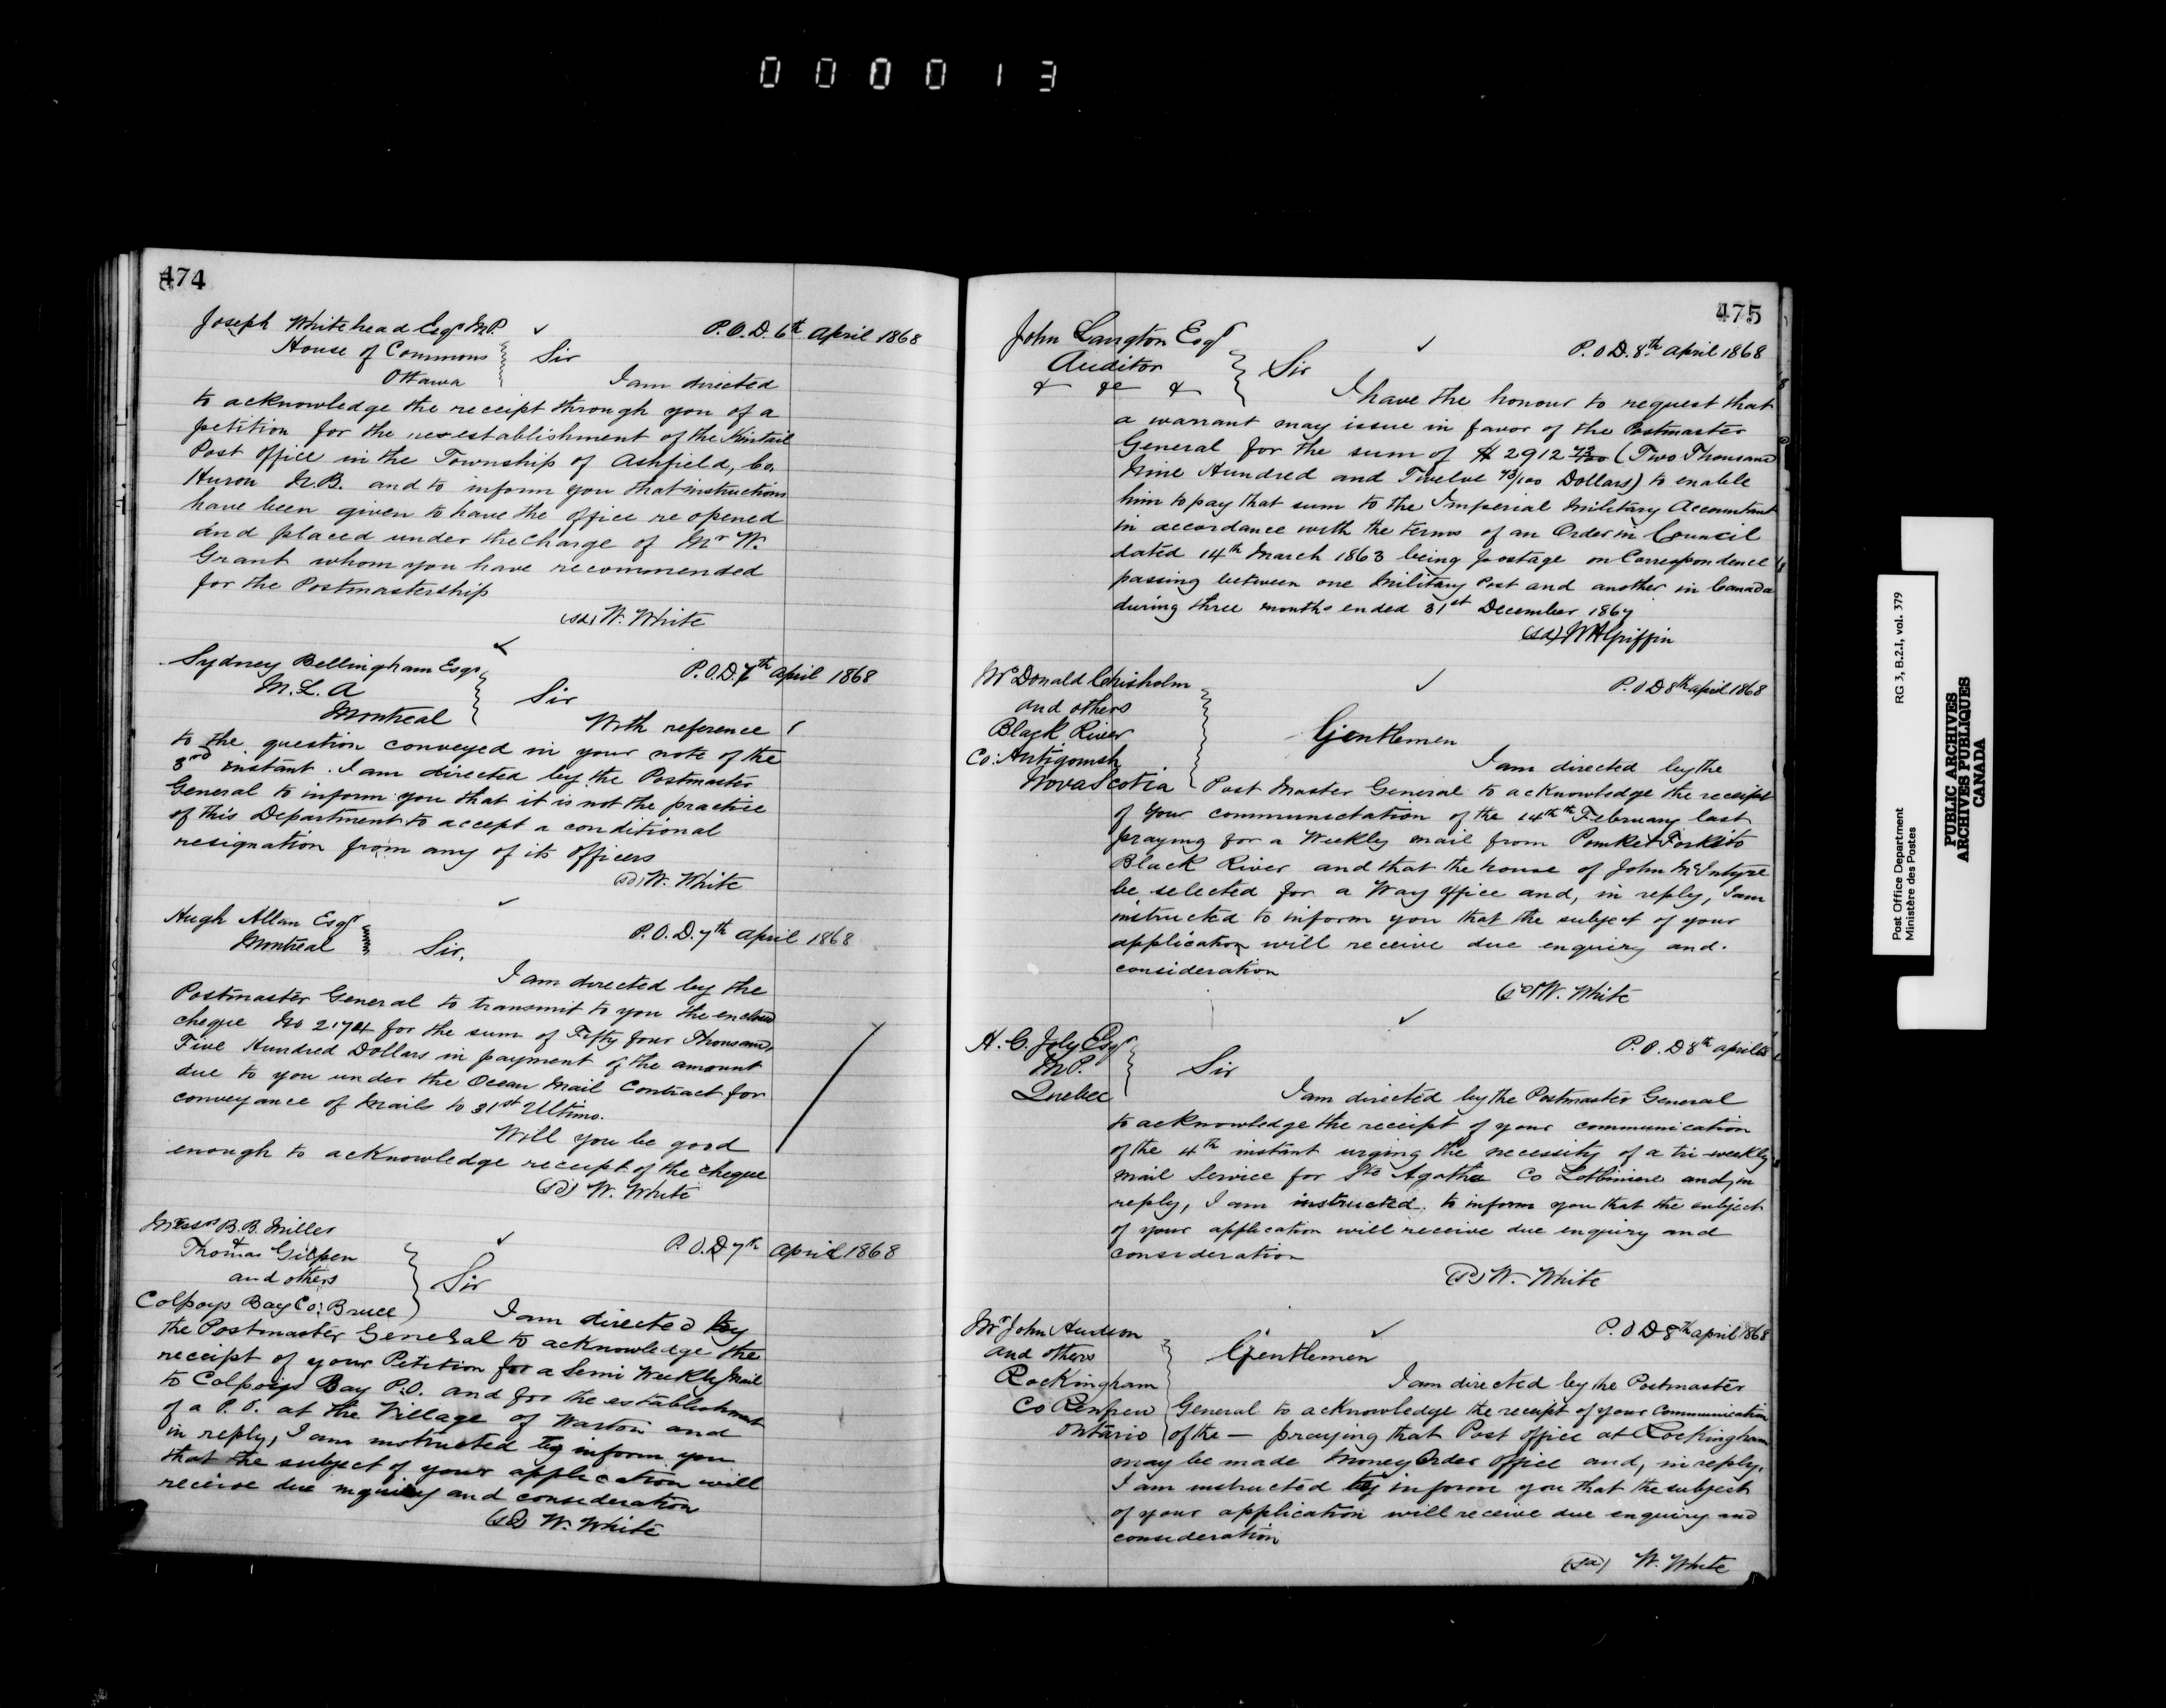 000013
474
Joseph Whitehead Esqr M.P.
P.O.D. 6th April 1868
House of Commons
Sir
Ottawa
I am directed
to acknowledge the receipt through you of a
petition for the re-establishment of the Kintail
Post Office in the Township of Ashfield, Co.
Huron N.B. and to inform you that instructions
have been given to have the office re opened
and placed under the charge of Mr W.
Grant whom you have recommended
for the Postmastership
(sd) W. White
Sydney Bellingham Esqr
P.O.D. 7th April 1868
M.L.A
Sir
Montreal
With reference
to the question conveyed in your note of the
3rd instant. I am directed by the Postmaster
General to inform you that it is not the practice
of this Department to accept a conditional
resignation from any of its officers
(sd) W. White
Hugh Allan Esqr
P.O.D. 7th April 1868
Montreal
Sir,
I am directed by the
Postmaster General to transmit to you the enclosed
cheque No 2174 for the sum of Fifty four Thousand
Five Hundred Dollars in payment of the amount
due to you under the Ocean Mail Contract for
conveyance of Mails to 31st Ultimo.
Will you be good
enough to acknowledge receipt of the cheque
(sd) W. White
Messrs B.B. Miller
&
Thomas Gilpen
P.O.D 7th April 1868
and others
Sir
Colpoys Bay Co: Bruce
I am directed by
the Postmaster General to acknowledge the
receipt of your Petition for a Semi Weekly Mail
to Colpoys Bay P.O. and for the establishment
of a P.O. at the Village of Warton and
in reply, I am instructed to inform you
that the subject of your application will
receive due inquiry and consideration
(sd) W. White
475
John Langton Esqr
P.O.D. 8th April 1868
Auditor
Sir
& &c &
I have the honour to request that
a warrant may issue in favor of the Postmaster
General for the sum of $ 2912 43/100 (Two Thousand
Nine Hundred and Twelve 43/100 Dollars) to enable
him to pay that sum to the Imperial Military Accountant
in accordance with the terms of an Order in Council
dated 14th March 1863 being postage on Correspondence
passing between one Military Post and another in Canada
during three months ended 31st December 1867
(sd) WHGriffin
Mr Donald Chisholm
P.O.D 8th April 1868
and others
Black River
Gentlemen
Co: Antigonish
I am directed by the
Nova Scotia
Post Master General to acknowledge the receipt
of your communication of the 14th th February last
praying for a Weekly mail from Pomket Forks to
Black River and that the house of John McIntyre
be selected for a Way office and, in reply, I am
instructed to inform you that the subject of your
application will receive due enquiry and.
consideration
(sd) W. White
H. G. Joly Esqr
P.O.D 8th April 68
M.P.
Sir
Quebec
I am directed by the Postmaster General
to acknowledge the receipt of your communication
of the 4th instant urging the necessity of a tri-weekly
mail Service for Ste Agathe Co Lotbiniere and, in
reply, I am instructed to inform you that the subject
of your application will receive due enquiry and
consideration
(sd) W. White
Mr John Hudson
P.O.D 8th April 1868
and others
Gentlemen
Rockingham
I am directed by the Postmaster
Co Renfrew
General to acknowledge the receipt of your Communication
Ontario
of the — praying that Post office at Rockingham
may be made Money Order office and, in reply,
I am instructed to inform you that the subject
of your application will receive due enquiry and
consideration
(sd) W. White
Post Office Department RG 3, B.2.I, vol. 379
Ministère des Postes
PUBLIC ARCHIVES
ARCHIVES PUBLIQUES
CANADA